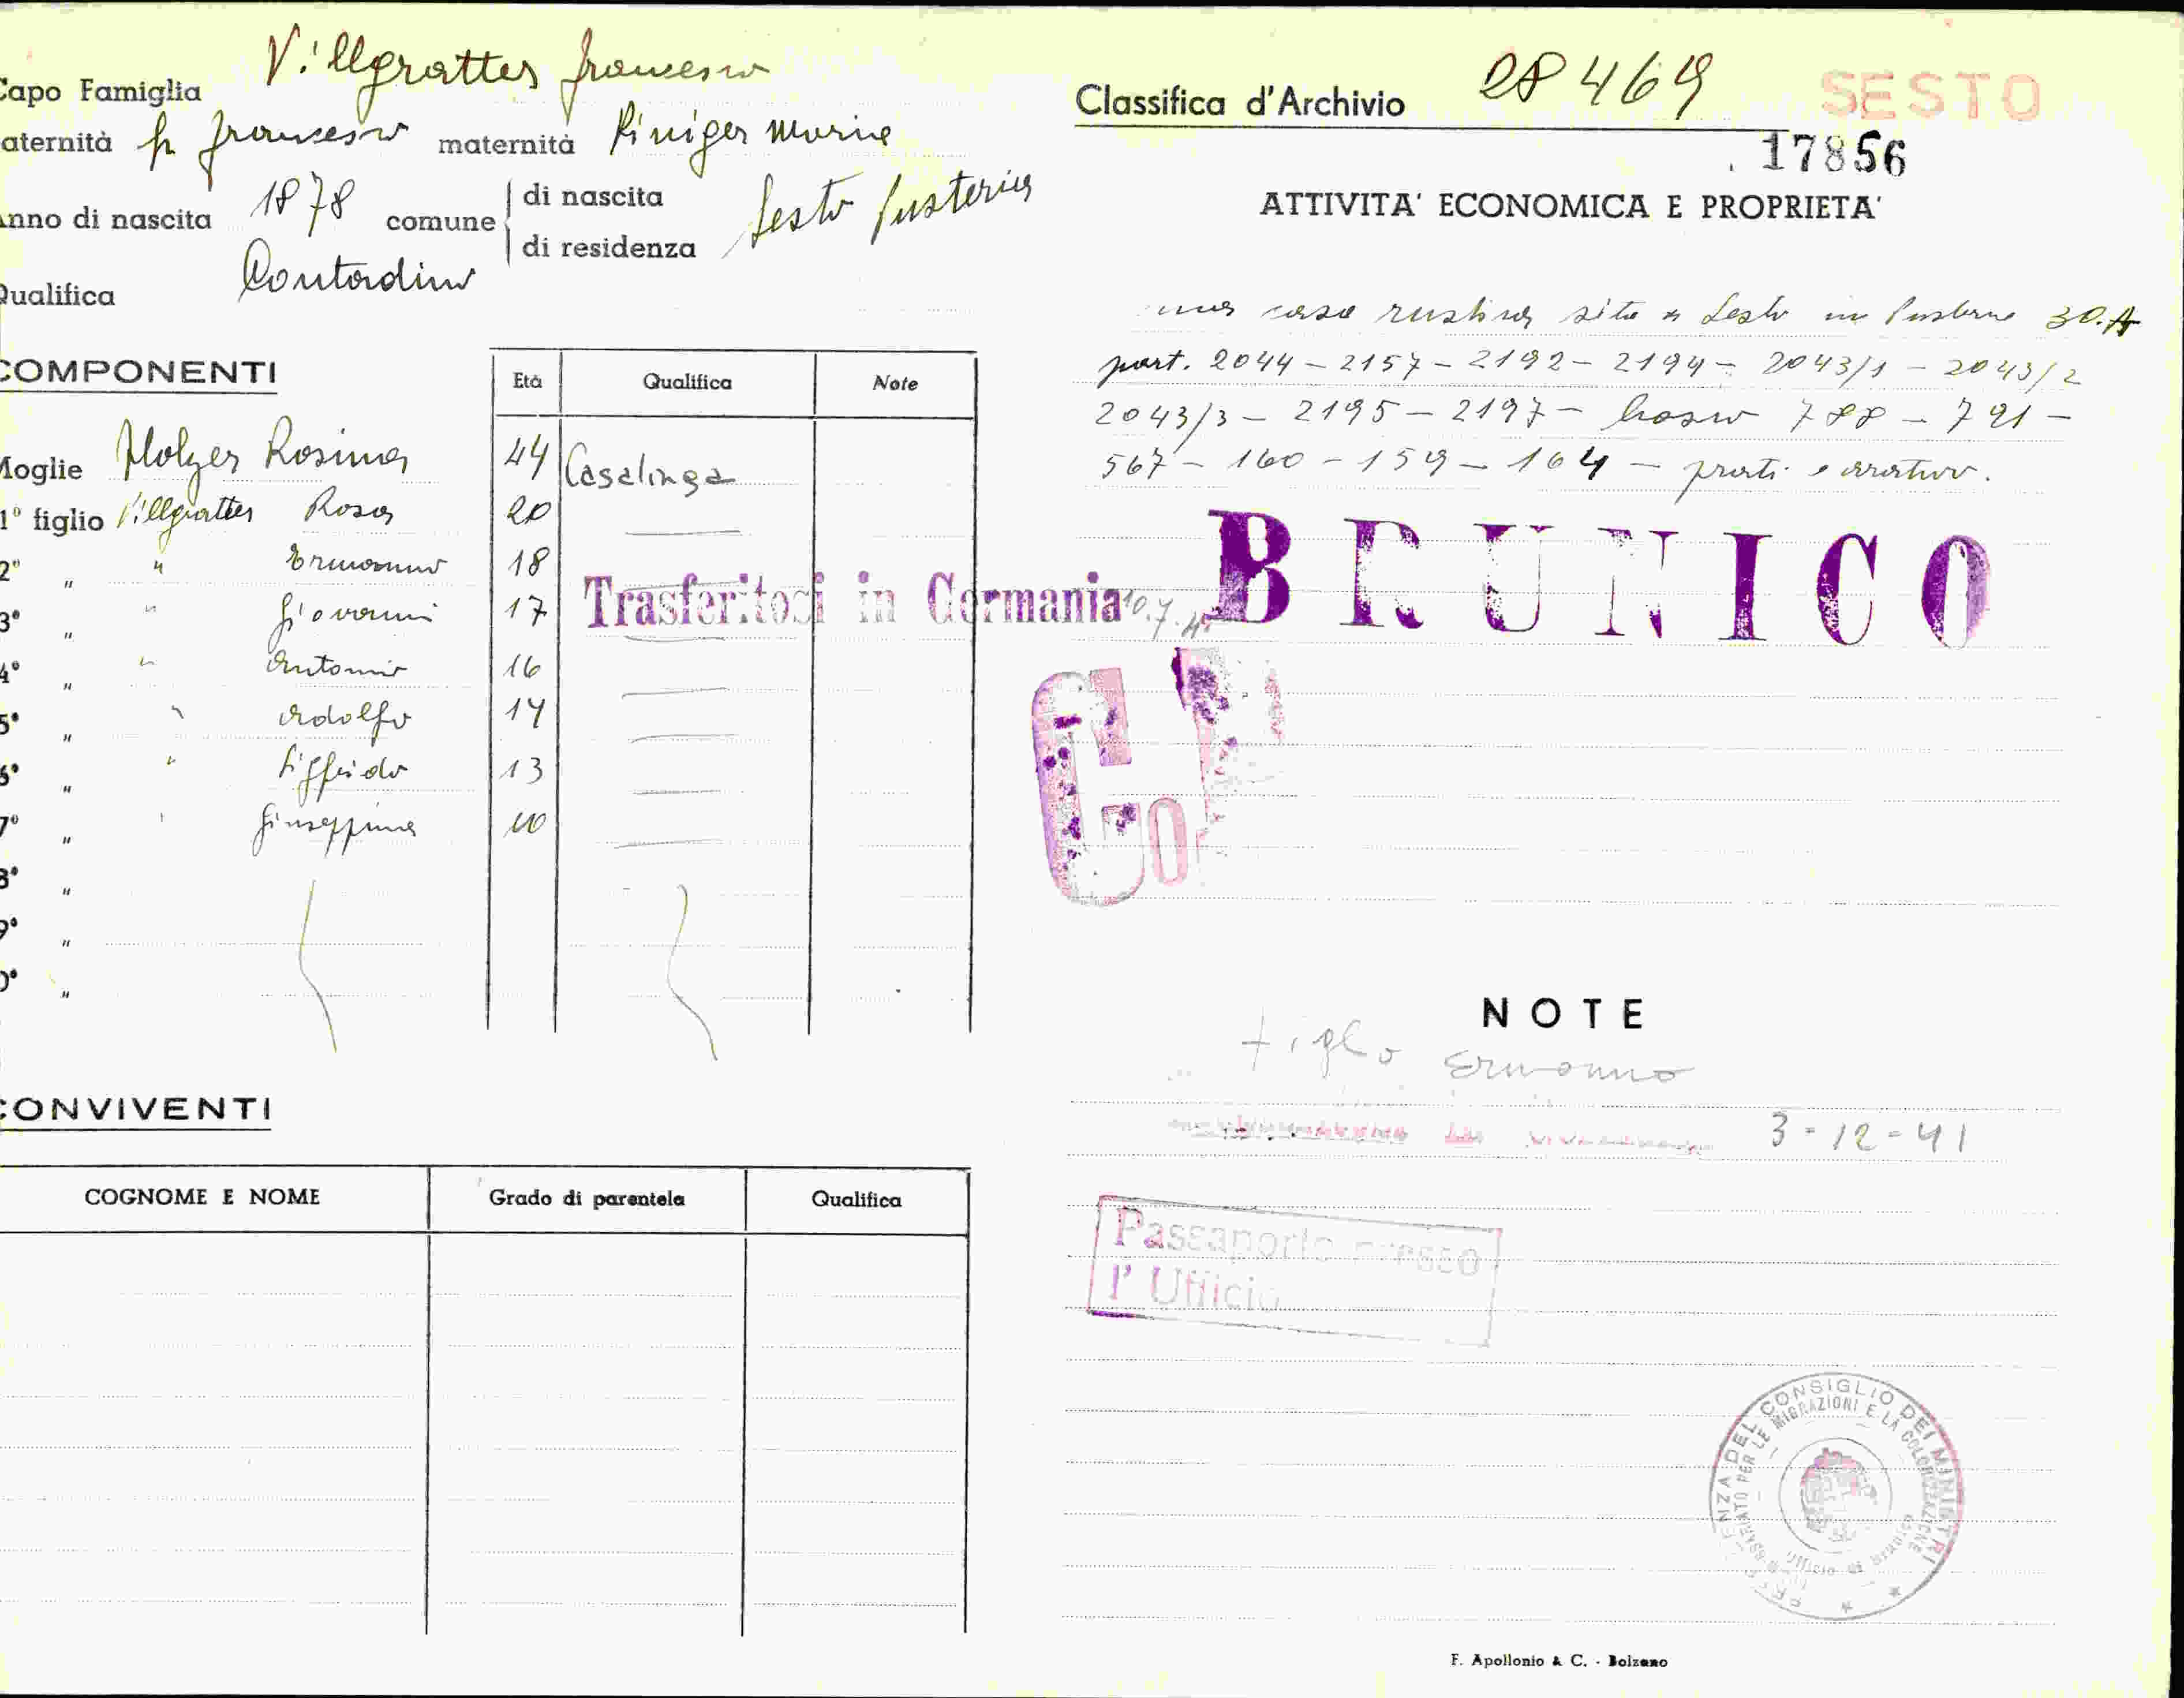 Capo Famiglia Villgratter Francesco
aternità fu Francesco maternità Piniger Maria
Anno di nascita 1878 comune di nascita
di residenza Sesto Pusteria
Qualifica Contadino
COMPONENTI
Età Qualifica Note
Moglie Holzer Rosina 44 Casalinga
1° figlio Villgratter Rosa 20
2° " " Ermanno 18
3° " " Giovanni 17 Trasferitosi in Germania 10.7.
4° " " Antonio 16
5° " " Adolfo 14
6° " " Siffrido 13
7° " " Giuseppina 10
8° "
9° "
0° "
CONVIVENTI
COGNOME E NOME Grado di parentela Qualifica
Classifica d'Archivio 28469 SESTO
17856
ATTIVITA' ECONOMICA E PROPRIETA'
una casa rustica sita a Sesto in Pusteria 30.A
part. 2044 - 2157 - 2192 - 2194 - 2043/1 - 2043/2
2043/3 - 2195 - 2197 - bosco 788 - 791 -
567 - 160 - 159 - 164 - prati e arativo.
BRUNICO
NOTE
figlio Ermanno
3-12-41
Passaporto presso
l'Ufficio
PRESIDENZA DEL CONSIGLIO DEI MINISTRI
COMMISSARIATO PER LE MIGRAZIONI E LA COLONIZZAZIONE
Ufficio di Brunico
F. Apollonio & C. - Bolzano